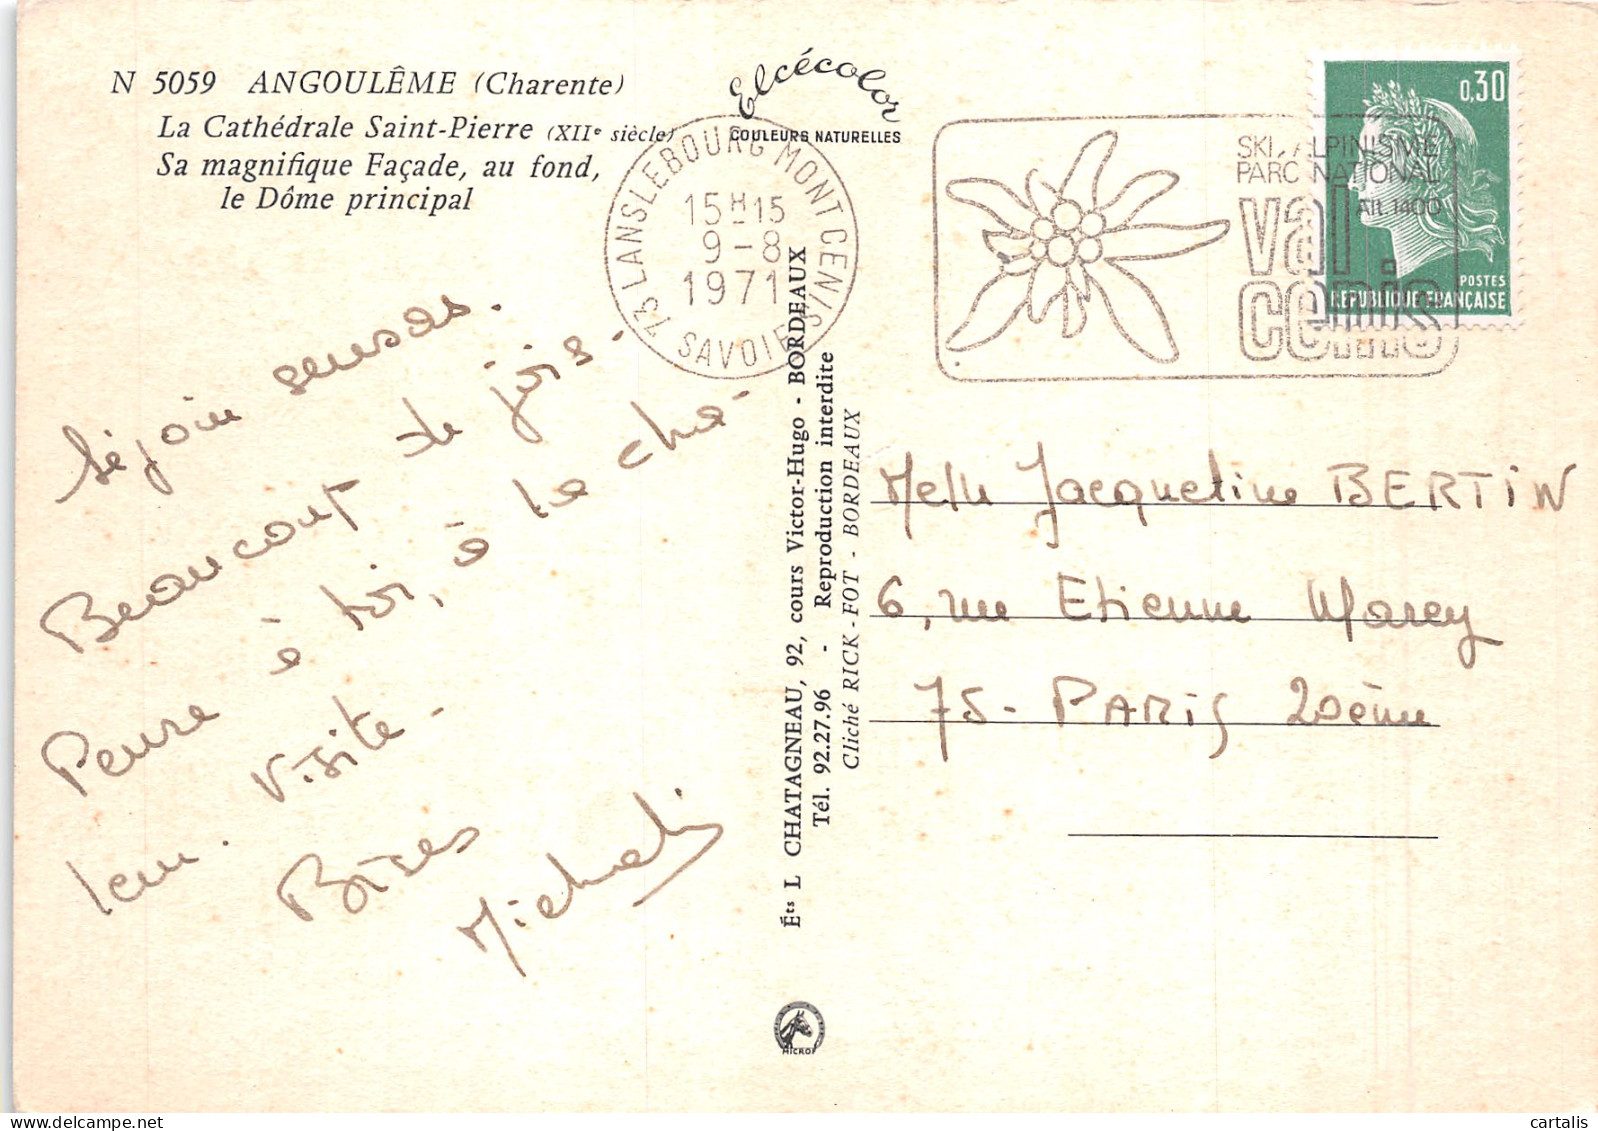 N 5059 ANGOULÊME (Charente)
La Cathédrale Saint-Pierre (XIIe siècle)
Sa magnifique Façade, au fond,
le Dôme principal
Elcécolor
COULEURS NATURELLES
73 LANSLEBOURG MONT CENIS
15H15
9-8
1971
SAVOIE
SKI, ALPINISME
PARC NATIONAL
Alt. 1400
val
cenis
0,30
POSTES
REPUBLIQUE FRANÇAISE
Séjour sensas.
Beaucoup de joie.
Pense à toi, à la cha-
leur. Visite.
Bises
Éts L CHATAGNEAU, 92, cours Victor-Hugo - BORDEAUX
Tél. 92.27.96 - Reproduction interdite
Cliché RICK-FOT - BORDEAUX
Melle Jacqueline BERTIN
6, rue Etienne Marey
75 - PARIS 20ème
MICRO
cartalis